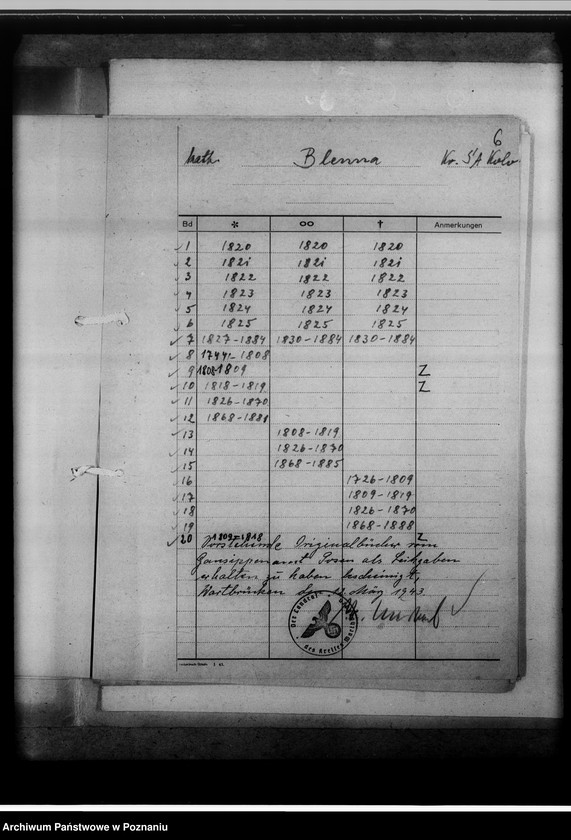 6
kath. Blenna Kr. S/A Kolo
Bd * ∞ † Anmerkungen
1 1820 1820 1820
2 1821 1821 1821
3 1822 1822 1822
4 1823 1823 1823
5 1824 1824 1824
6 1825 1825 1825
7 1827-1884 1830-1884 1830-1884
8 1744-1808
9 1808-1809 Z
10 1818-1819 Z
11 1826-1870
12 1868-1881
13 1808-1819
14 1826-1870
15 1868-1885
16 1726-1809
17 1809-1819
18 1826-1870
19 1868-1888
20 1809-1818 Z
Vorstehende Originalbücher vom
Gausippenamt Posen als Leihgaben
erhalten zu haben bescheinigt,
Wartbrücken, den März 1943
Der Landrat
des Kreises
Archiwum Państwowe w Poznaniu